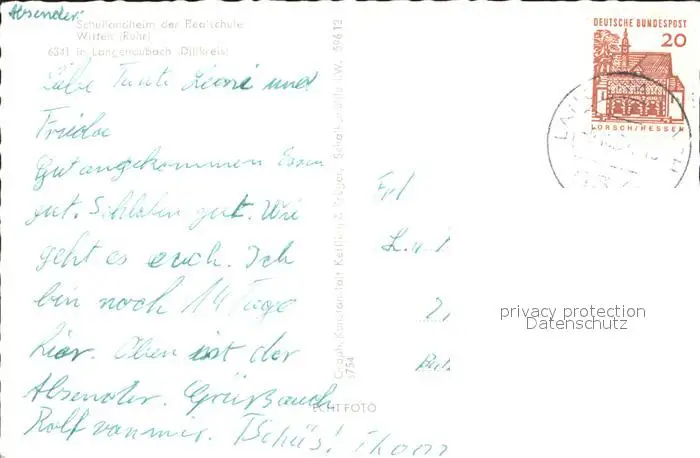 Absender:
Schullandheim der Realschule
Witten (Ruhr)
6341 in Langenaubach (Dillkreis)
Liebe Tante Leoni und
Frieda
Gut angekommen Essen
gut. Schlafen gut. Wie
geht es euch. Ich
bin noch 14 Tage
hier. Oben ist der
Absender. Grüß auch
Rolf von mir. Tschüs!
ECHT FOTO
DEUTSCHE BUNDESPOST
20
LORSCH/HESSEN
privacy protection
Datenschutz